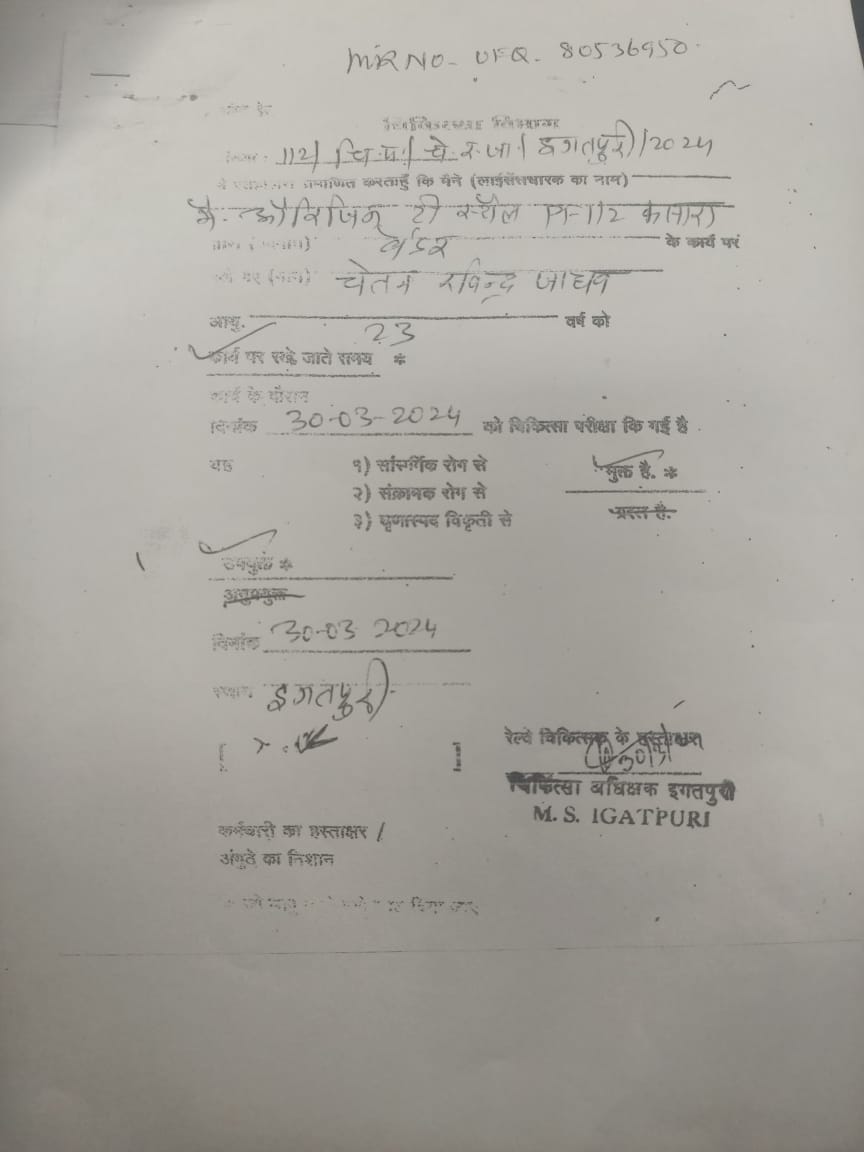 MR NO- UFQ- 80536950
112/ चि.प्र/ चे.र.जा/ इगतपुरी/2024
प्रमाणित करताहुँ कि मैने (लाईसेंसधारक का नाम)
मे. ओरिजिन टी स्टॉल PF-112 कसारा
वेंडर के कार्य परं
चेतन रविन्द्र जाधव
आयु. 23 वर्ष को
कार्य पर रखे जाते समय *
कार्य के दौरान
दिनांक 30-03-2024 को चिकित्सा परीक्षा कि गई है
यह १) सांसर्गिक रोग से मुक्त है. *
२) संक्रामक रोग से
३) घृणास्पद विकृती से ग्रस्त है.
उपयुक्त *
अनुपयुक्त
दिनांक 30-03 2024
स्थान. इगतपुरी
[ ]
रेल्वे चिकित्सक के हस्ताक्षर
चिकित्सा अधिक्षक इगतपुरी
M. S. IGATPURI
कर्मचारी का हस्ताक्षर /
अंगुठे का निशान